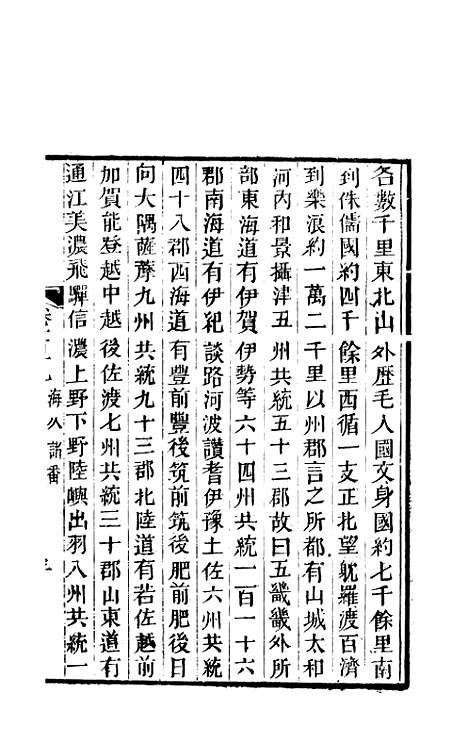 各數千里東北山外歷毛人國文身國約七千餘里南
到侏儒國約四千餘里西循一支正北望躭羅渡百濟
到樂浪約一萬二千里以州郡言之所都有山城太和
河內和景攝津五州共統五十三郡故曰五畿畿外所
部東海道有伊賀伊勢等六十四州共統一百一十六
郡南海道有伊紀談路河波讚耆伊豫土佐六州共統
四十八郡西海道有豐前豐後筑前筑後肥前肥後日
向大隅薩摩九州共統九十三郡北陸道有若佐越前
加賀能登越中越後佐渡七州共統三十郡山東道有
通江美濃飛驒信濃上野下野陸嶼出羽八州共統一
海八諸番